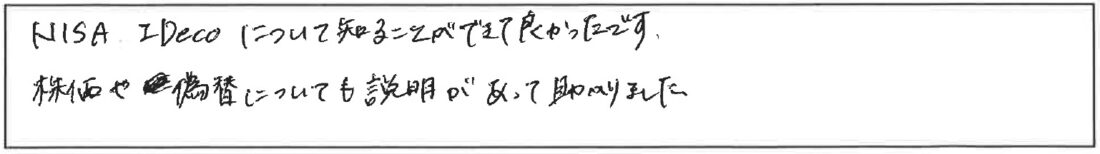 NISA IDeco について知ることができて良かったです。
株価や偽替についても説明があって助かりました